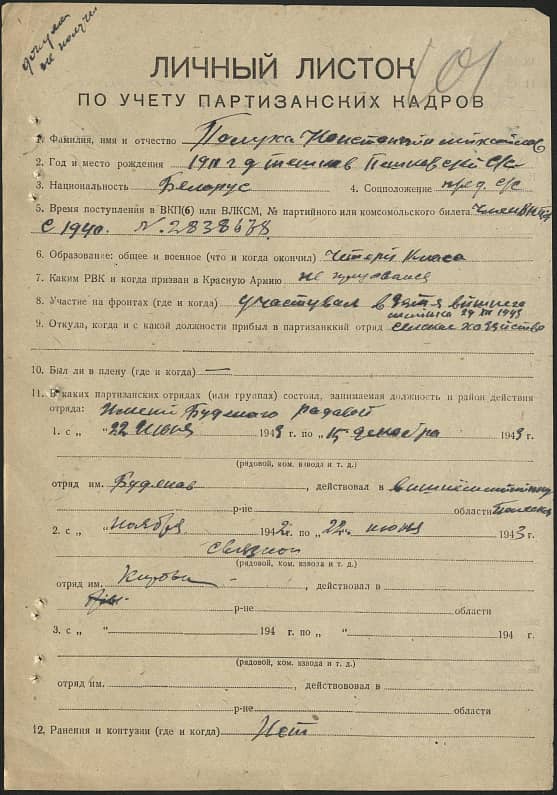 не получ
101
ЛИЧНЫЙ ЛИСТОК
ПО УЧЕТУ ПАРТИЗАНСКИХ КАДРОВ
1. Фамилия, имя и отчество Полуха Константин
2. Год и место рождения 1911 г д с/с
3. Национальность Беларус 4. Соцположение пред. с/с
5. Время поступления в ВКП(б) или ВЛКСМ, № партийного или комсомольского билета
с 1940. N. 2838678
6. Образование: общее и военное (что и когда окончил) Четери класа
7. Каким РВК и когда призван в Красную Армию не призвался
8. Участие на фронтах (где и когда) участувал в
29 XII 1943
9. Откуда, когда и с какой должности прибыл в партизанкий отряд сельское хозяйство
10. Был ли в плену (где и когда) —
11. В каких партизанских отрядах (или группах) состоял, занимаемая должность и район действия
отряда: Имени Буденого радавой
1. с „ "22 Июня 1943 г. по „15 декабря 1943 г.
(рядовой, ком. взвода и т. д.)
отряд им. Буденав, действовал в
р-не области
2. с „ "ноября 1942 г. по „22 июня 1943 г.
связной
(рядовой, ком. взвода и т. д.)
отряд им. Кирова, действовал в
р-не области
3. с „ " 194 г. по „ " 194 г.
(рядовой, ком. взвода и т. д.)
отряд им. , действовал в
р-не области
12. Ранения и контузии (где и когда) Нет